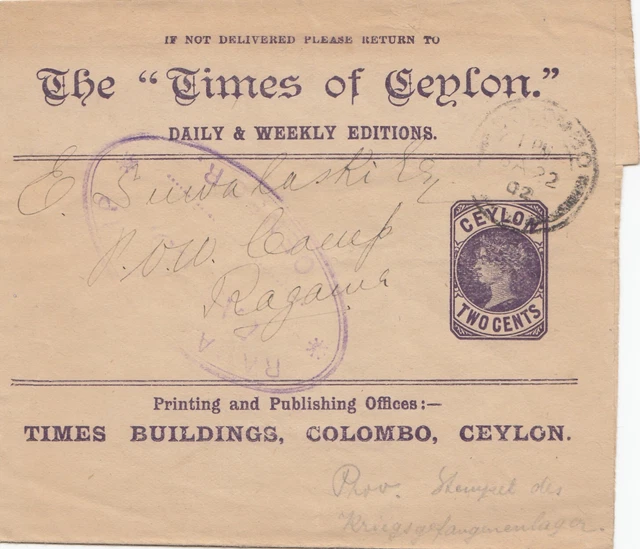 IF NOT DELIVERED PLEASE RETURN TO
The "Times of Ceylon."
DAILY & WEEKLY EDITIONS.
22
02
E.
P.O.W. Camp
Ragama
CEYLON
TWO CENTS
RA
Printing and Publishing Offices:—
TIMES BUILDINGS, COLOMBO, CEYLON.
Prov. Stempel des
Kriegsgefangenenlager.